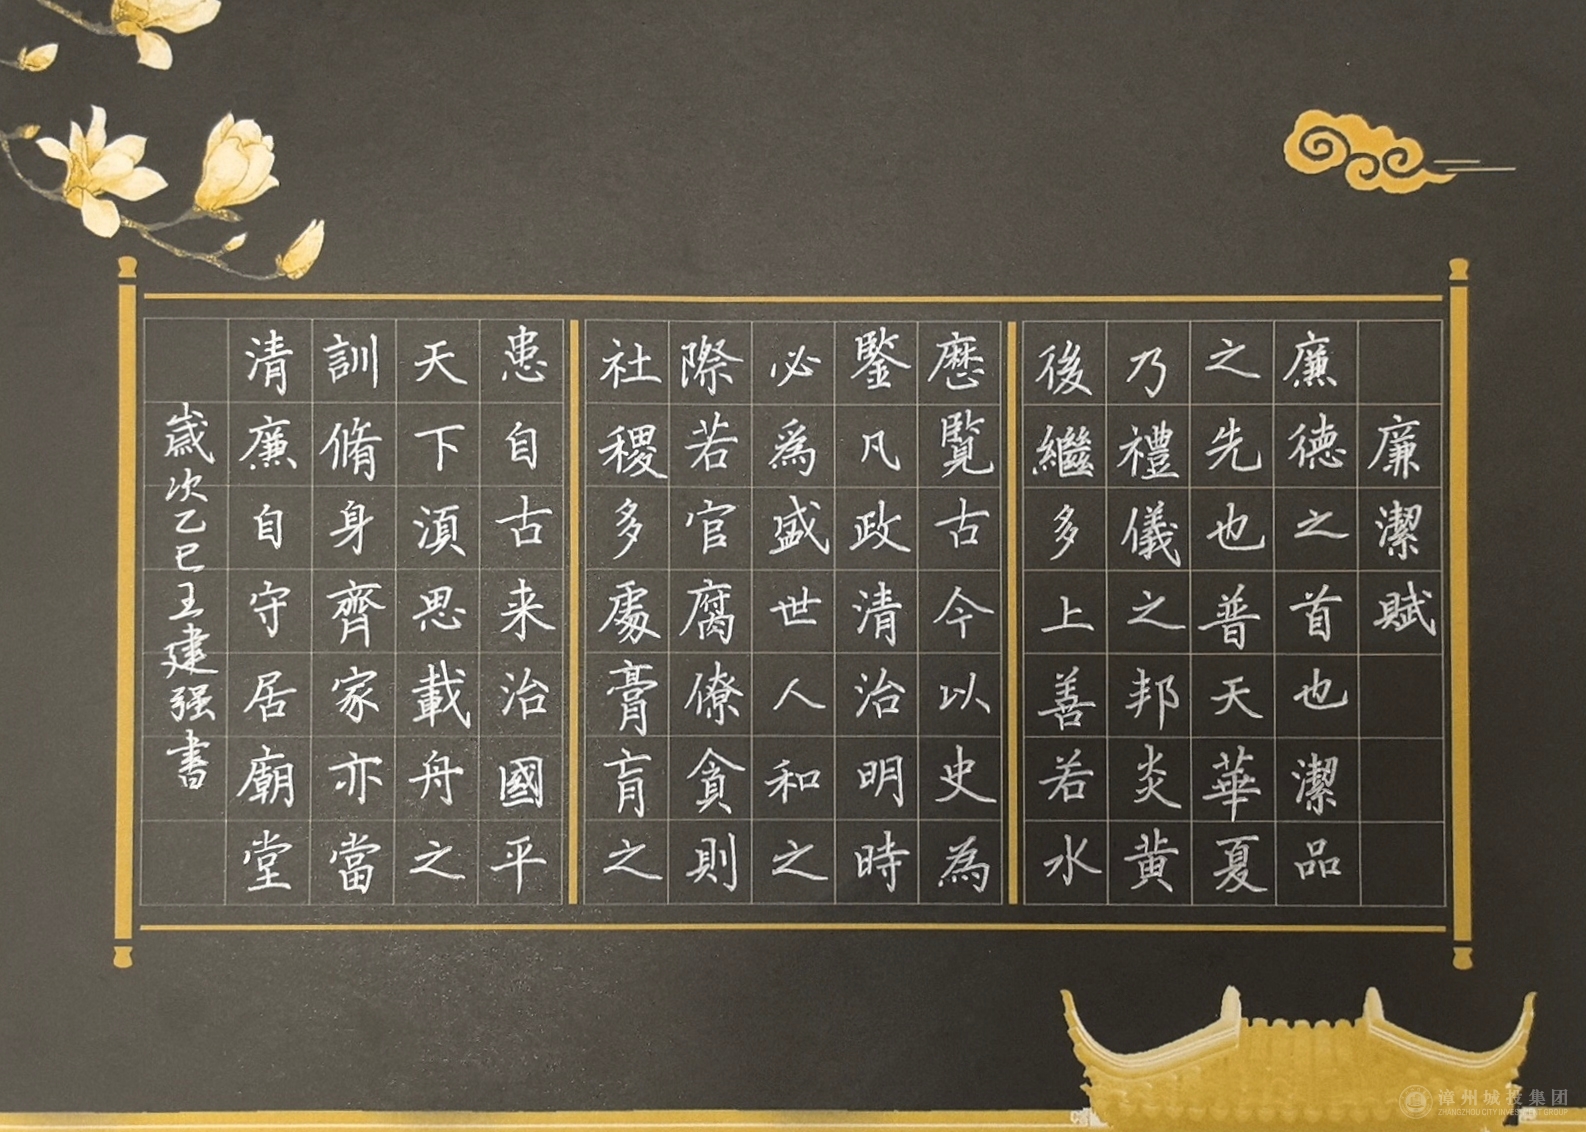 廉潔賦
廉德之首也潔品
之先也普天華夏
乃禮儀之邦炎黄
後繼多上善若水
歷覽古今以史為
鑒凡政清治明時
必爲盛世人和之
際若官腐僚貪則
社稷多處膏肓之
患自古来治國平
天下須思載舟之
訓脩身齊家亦當
清廉自守居廟堂
歲次乙巳王建强書
漳州城投集团
ZHANGZHOU CITY INVESTMENT GROUP